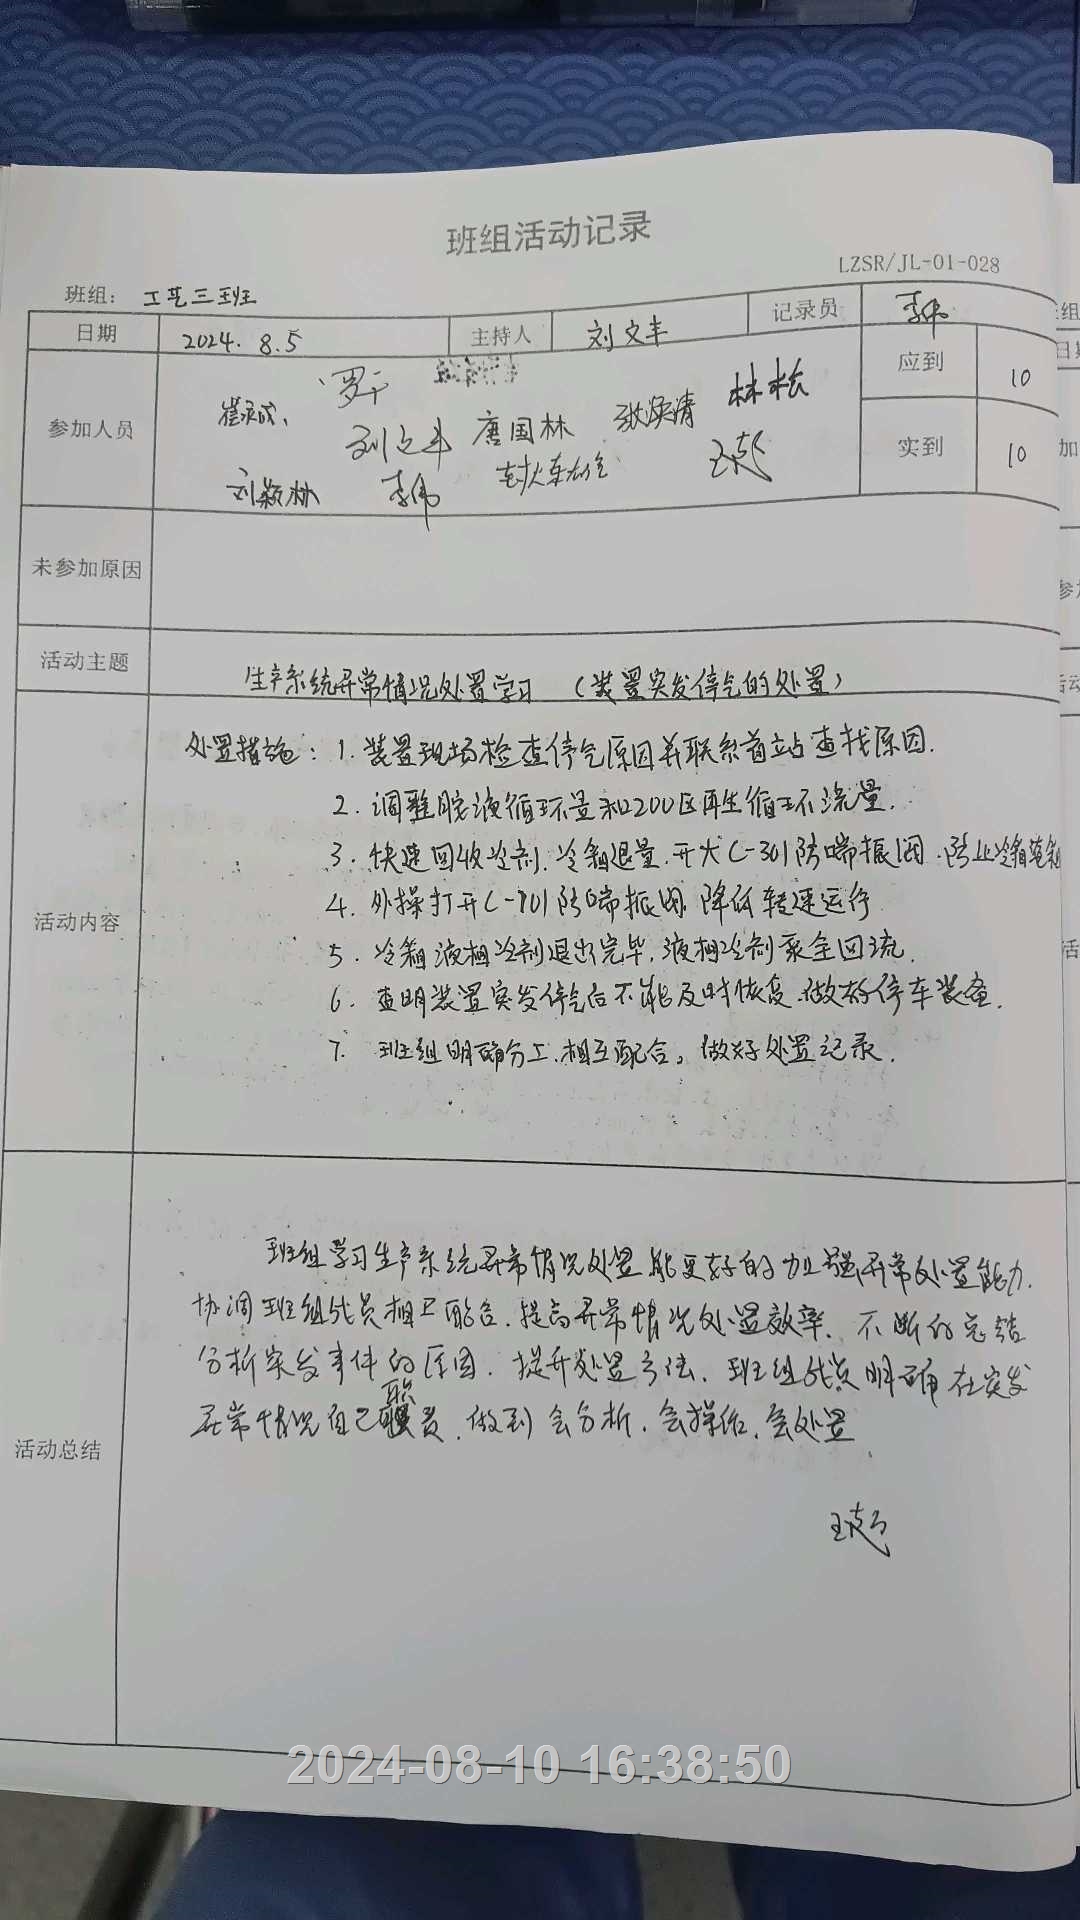 班组活动记录
LZSR/JL-01-028
班组： 工艺三班
日期 2024. 8.5 主持人 刘文丰 记录员 李伟
参加人员 罗 应到 10
刘文丰 唐国林 林松
刘颖林 李伟 实到 10
未参加原因
活动主题 生产系统异常情况处置学习 （装置突发停气的处置）
活动内容
处置措施：1. 装置现场检查停气原因并联系首站查找原因.
2. 调整胺液循环量和200区再生循环流量.
3. 快速回收冷剂. 冷箱退量. 开大C-301防喘振阀. 防止冷箱
4. 外操打开C-701防喘振阀 降低转速运行
5. 冷箱液相冷剂退出完毕. 液相冷剂泵全回流.
6. 查明装置突发停气后不能及时恢复. 做好停车装备.
7. 班组明确分工. 相互配合。做好处置记录.
活动总结
班组学习生产系统异常情况处置能更好的加强异常处置能力.
协调班组成员相互配合. 提高异常情况处置效率. 不断的总结
分析突发事件的原因. 提升处置方法. 班组成员明确在突发
异常情况自己职责. 做到会分析. 会操作. 会处置
2024-08-10 16:38:50